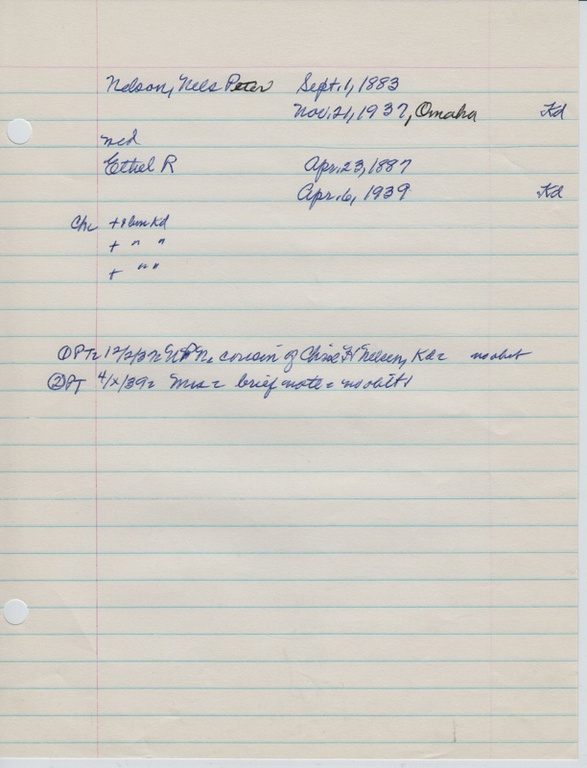 Nelson, Nels Peter Sept. 1, 1883
Nov. 21, 1937, Omaha Kd
md
Ethel R Apr. 23, 1887
Apr. 6, 1939 Kd
Chr + Kd
+ " "
+ " "
① PT= 12/2/37= N cousin of H Nelson, Kd= no obit
② PT 4/x/39= Mrs = brief note = no obit